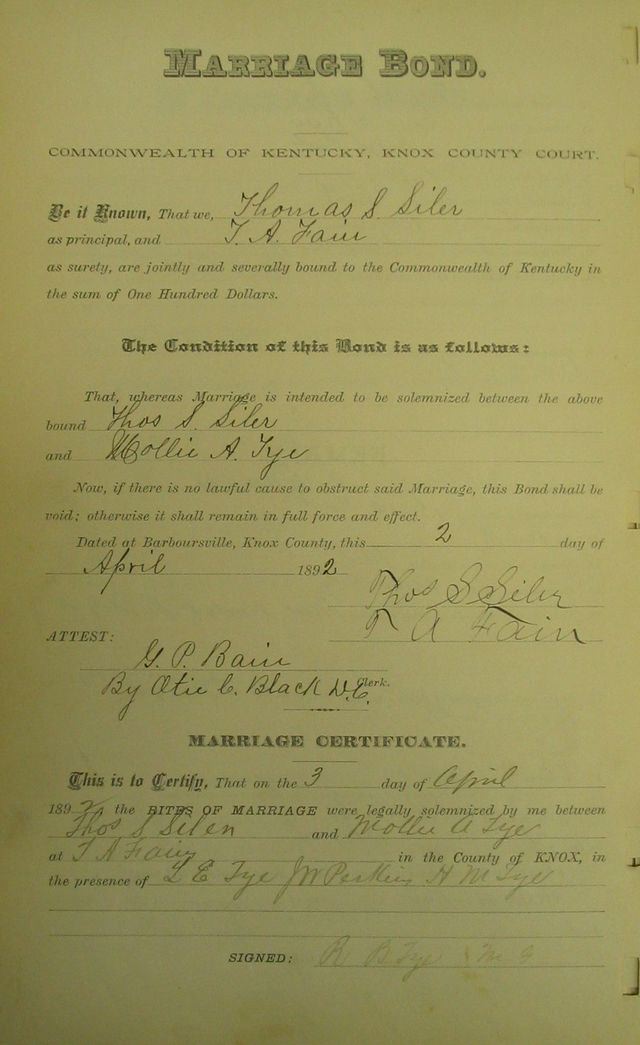 MARRIAGE BOND.
COMMONWEALTH OF KENTUCKY, KNOX COUNTY COURT.
Be it Known, That we, Thomas S. Siler
as principal, and T. A. Fain
as surety, are jointly and severally bound to the Commonwealth of Kentucky in
the sum of One Hundred Dollars.
The Condition of this Bond is as follows:
That, whereas Marriage is intended to be solemnized between the above
bound Thos S. Siler
and Mollie A. Tye
Now, if there is no lawful cause to obstruct said Marriage, this Bond shall be
void; otherwise it shall remain in full force and effect.
Dated at Barboursville, Knox County, this 2 day of
April 1892
Thos S Siler
T A Fain
ATTEST:
G. P. Bain
Clerk.
By Otie C. Black D.C.
MARRIAGE CERTIFICATE.
This is to Certify, That on the 3 day of April
1892 the RITES OF MARRIAGE were legally solemnized by me between
Thos S Siler and Mollie A Tye
at T A Fains in the County of KNOX, in
the presence of L E Tye J W Perkins H M Tye
SIGNED: R B Tye M G